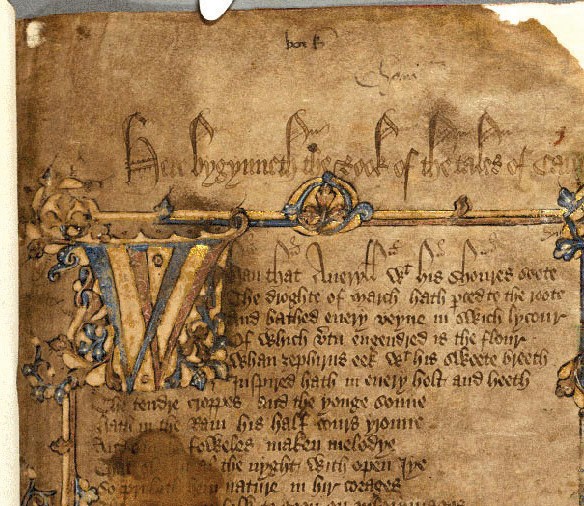 Here bygynneth the Book of the tales of Cau
Whan that Aueryll wt his shoures soote
The droghte of march hath perced to the roote
And bathed euery veyne in swich lycour
Of which vtu engendred is the flour
Whan zephirus eek wt his sweete breeth
Inspired hath in euery holt and heeth
The tendre croppes and the yonge sonne
hath in the Ram his half cours yronne
And foweles maken melodye
the nyght with open Iye
So priketh hem nature in hir corages